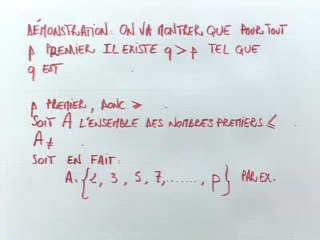 DÉMONSTRATION: ON VA MONTRER QUE POUR TOUT
p PREMIER IL EXISTE q > p TEL QUE
q EST
p PREMIER, DONC ⩾
SOIT A L'ENSEMBLE DES NOMBRES PREMIERS ⩽
A ≠
SOIT EN FAIT:
A = {2, 3, 5, 7, ......., p} PAR EX.